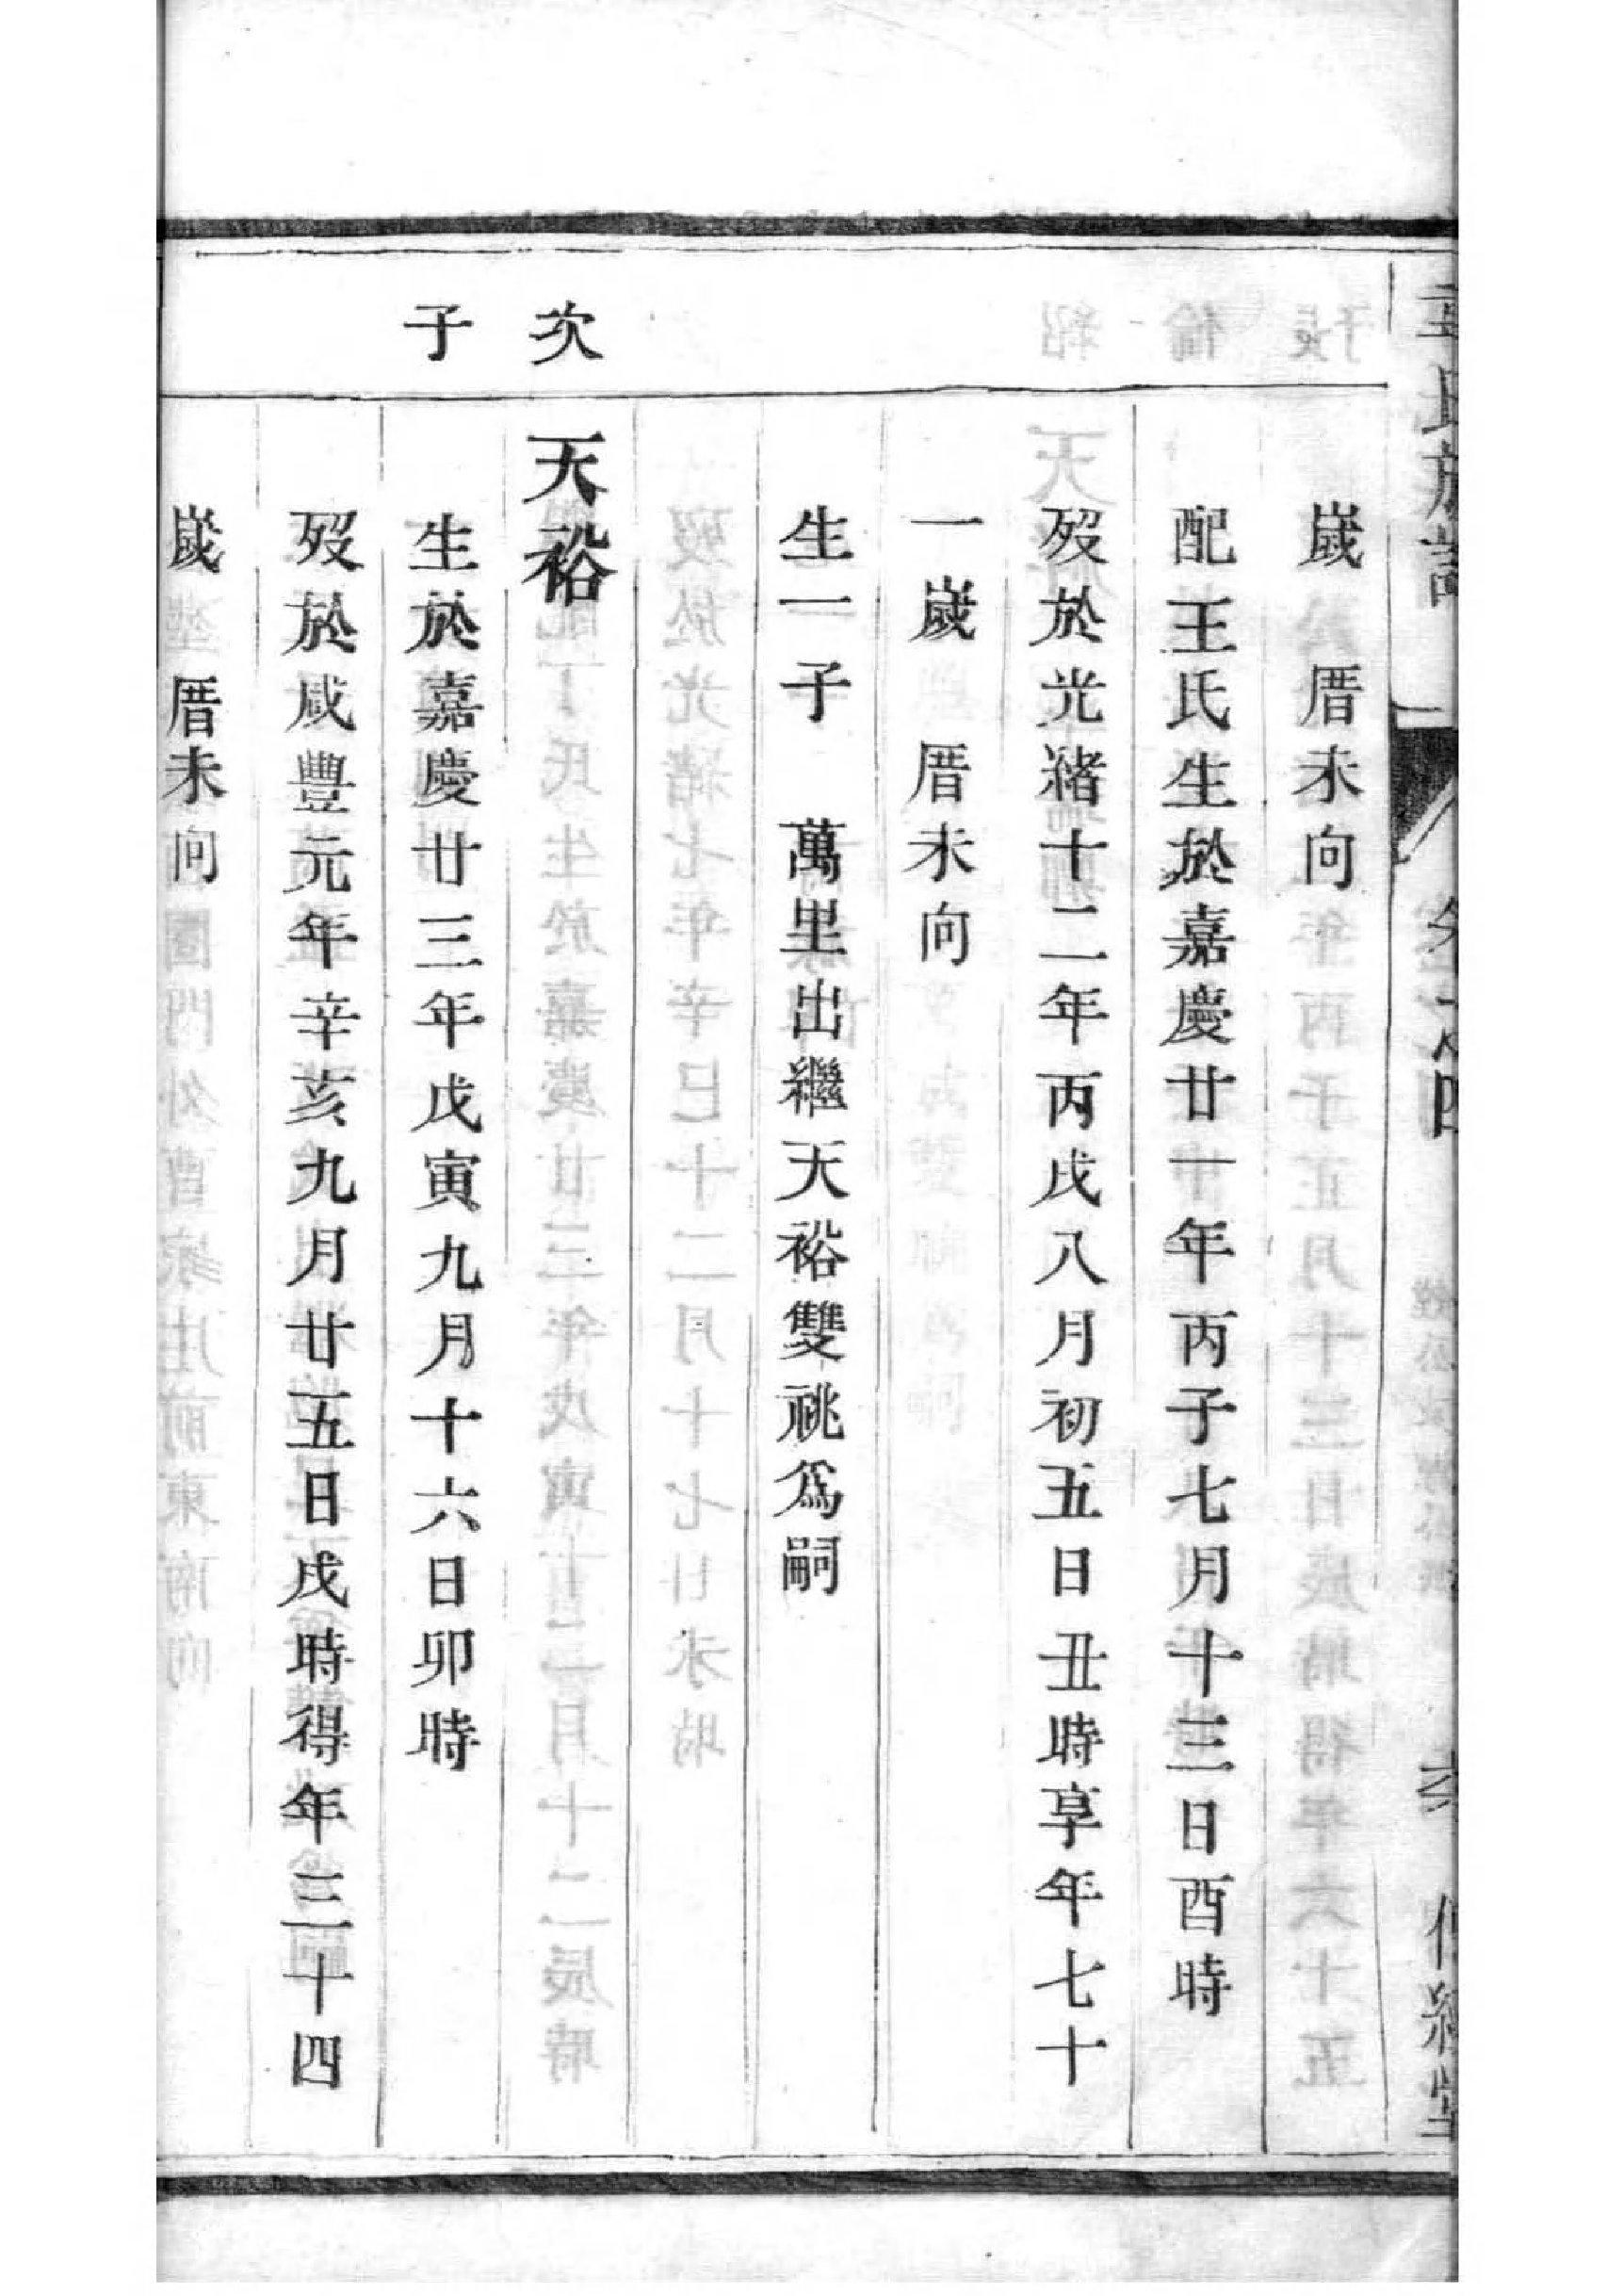 歲　厝未向
配王氏生於嘉慶廿一年丙子七月十三日酉時
歿於光緒十二年丙戌八月初五日丑時享年七十
一歲　厝未向
生一子　萬里出繼天裕雙祧爲嗣
次子
天裕
生於嘉慶廿三年戊寅九月十六日卯時
歿於咸豐元年辛亥九月廿五日戌時得年三十四
歲　厝未向